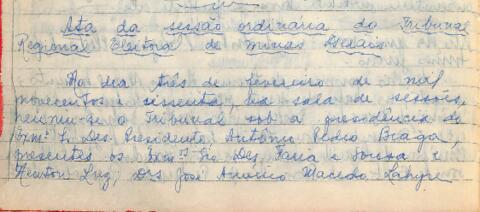 Ata da sessão ordinária do Tribunal
Regional Eleitoral de Minas Gerais
Ao dia três de fevereiro de mil
novecentos e sessenta, na sala de sessões,
reuniu-se o Tribunal sob a presidência do
Exmº S. Des. Presidente, Antônio Pedro Braga,
presentes os Exmºs Srs. Des. Faria e Sousa e
Newton Luz, Drs José Américo Macedo,